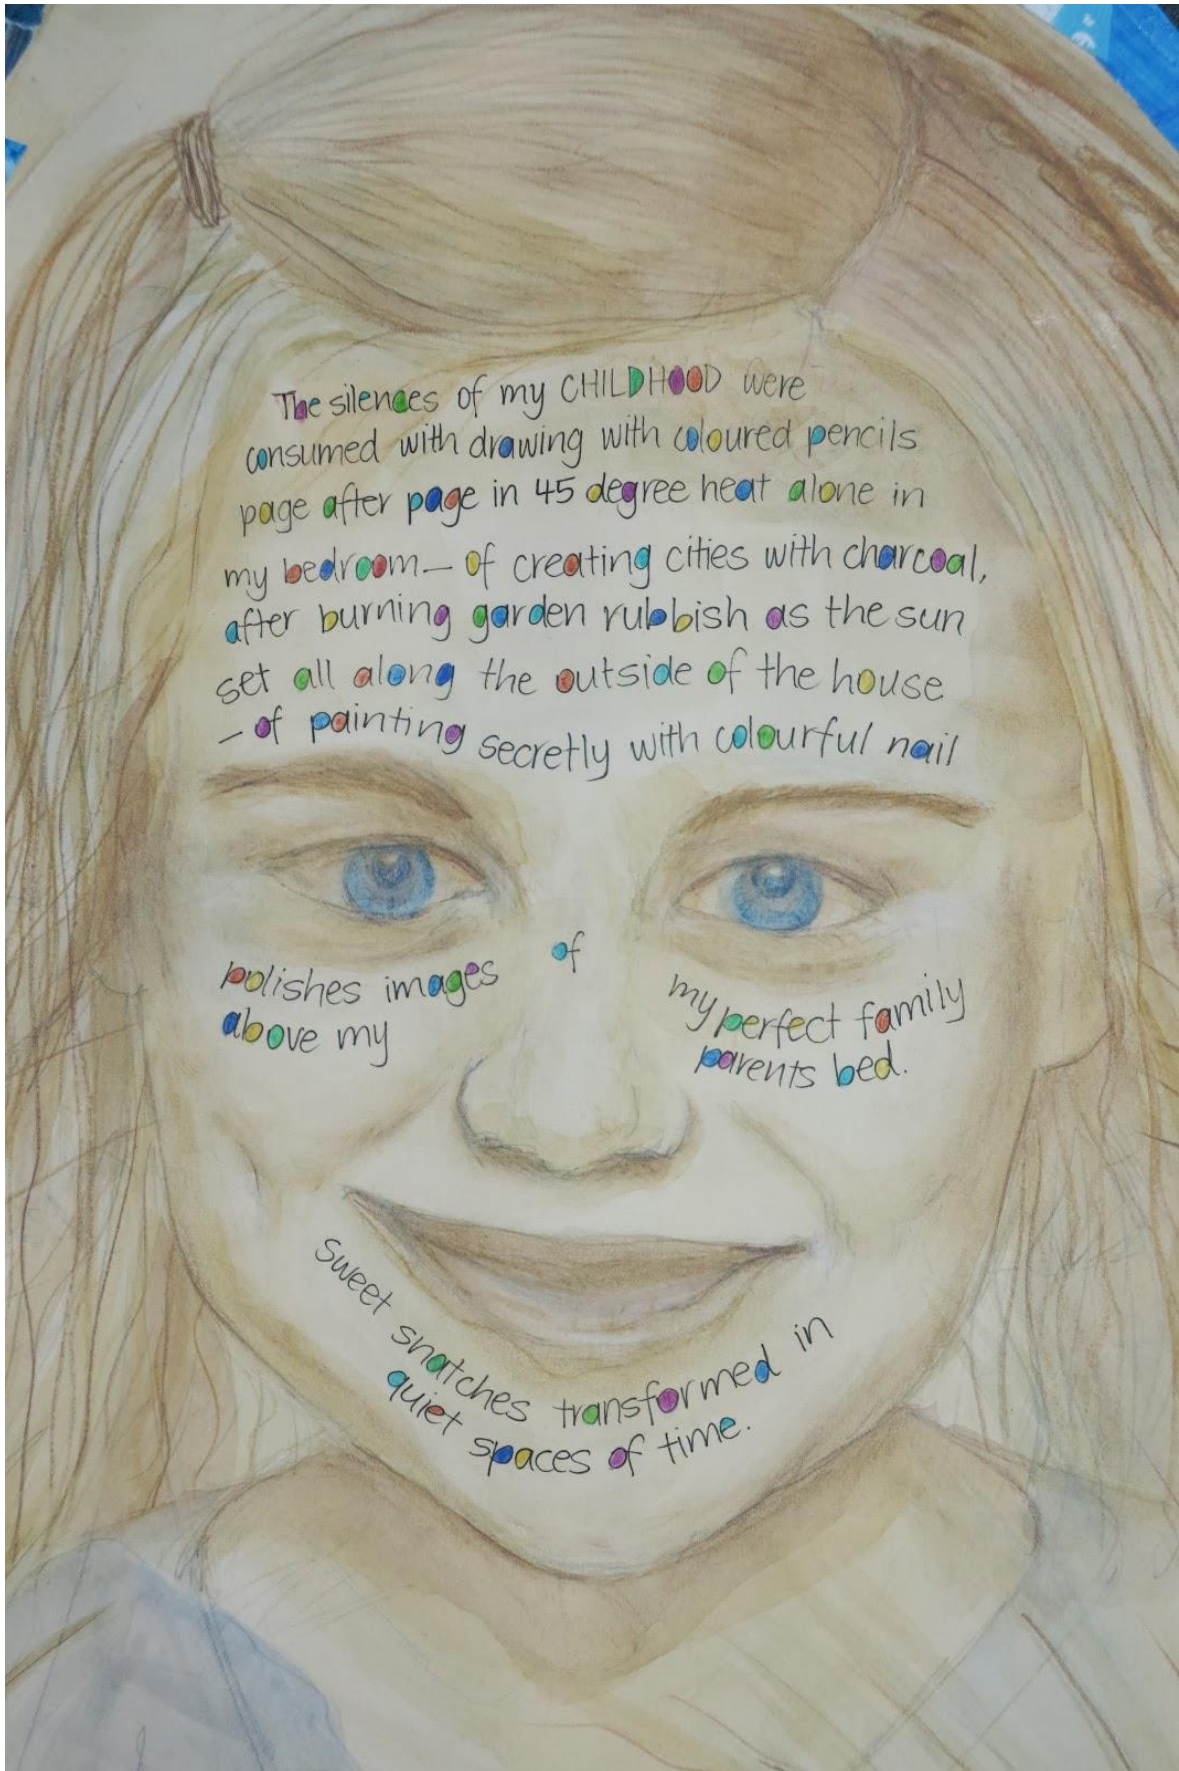 The silences of my CHILDHOOD were
consumed with drawing with coloured pencils
page after page in 45 degree heat alone in
my bedroom — of creating cities with charcoal,
after burning garden rubbish as the sun
set all along the outside of the house
— of painting secretly with colourful nail
polishes images of my perfect family
above my parents bed.
sweet snatches transformed in
quiet spaces of time.